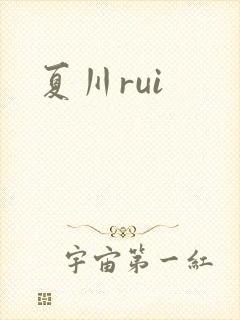 夏川rui
宇宙第一紅